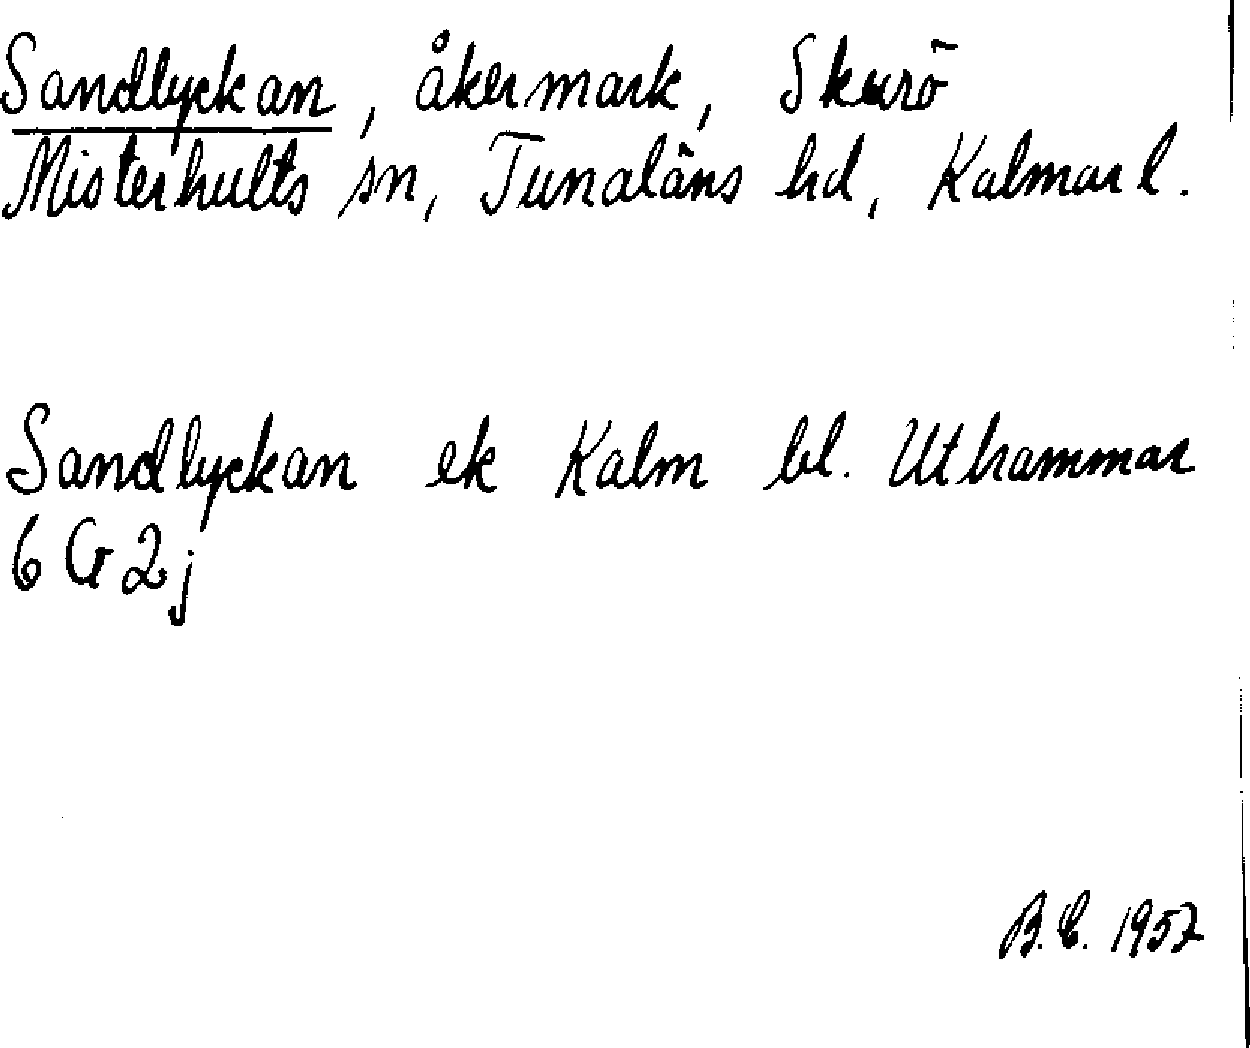 Sandlyckan, åkermark, Skurö
Misterhults sn, Tunaläns hd, Kalmar l.
Sandlyckan ek Kalm bl. Uthammar
6 G 2j
B.C. 1957